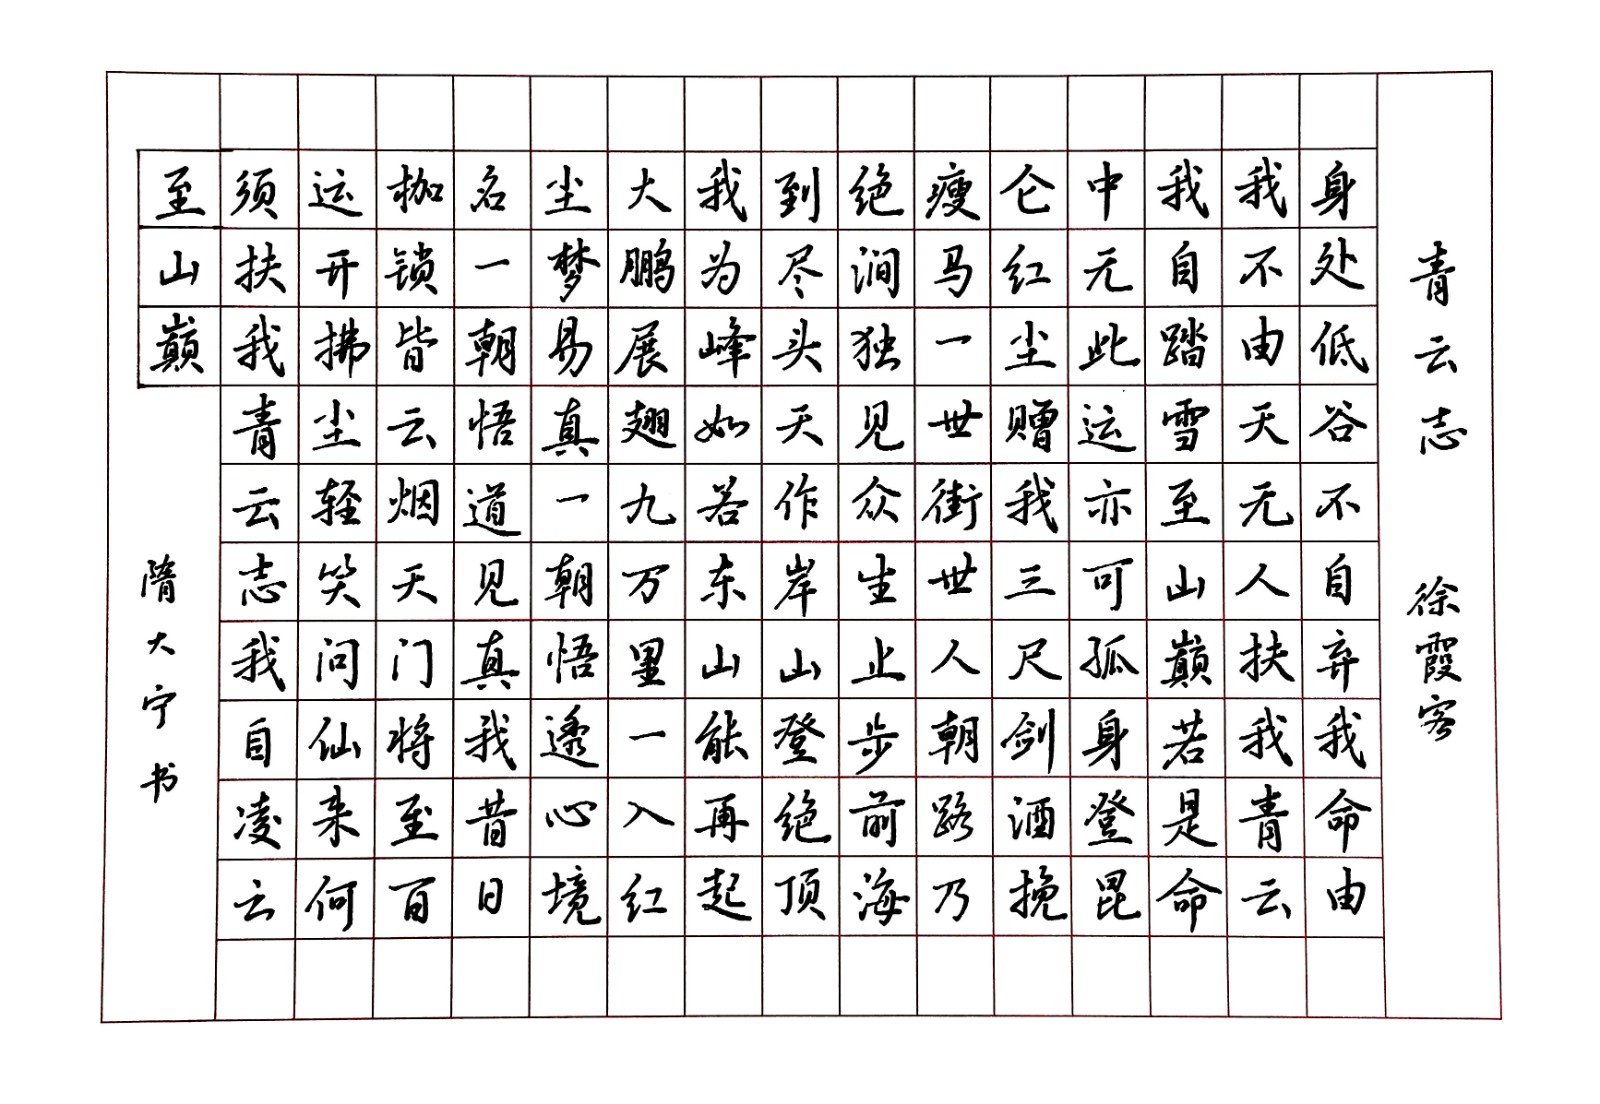 青云志 徐霞客
身处低谷不自弃我命由
我不由天无人扶我青云
我自踏雪至山巅若是命
中无此运亦可孤身登昆
仑红尘赠我三尺剑酒挽
瘦马一世街世人朝路乃
绝涧独见众生止步前海
到尽头天作岸山登绝顶
我为峰如若东山能再起
大鹏展翅九万里一入红
尘梦易真一朝悟透心境
名一朝悟道见真我昔日
枷锁皆云烟天门将至百
运开拂尘轻笑问仙来何
须扶我青云志我自凌云
至山巅
隋大宁书